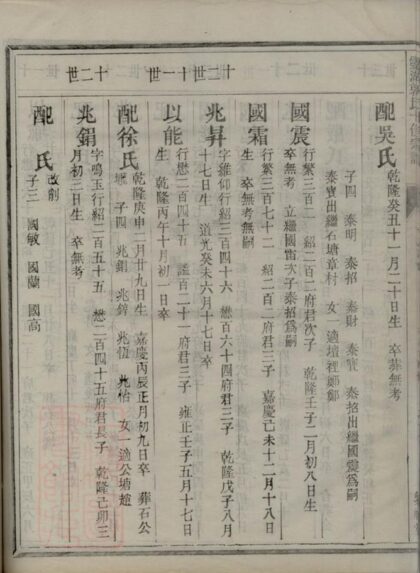 配吳氏 乾隆癸丑十一月二十日生 卒葬無考
子四 泰明 泰招 泰財 泰寶 泰招出繼國震爲嗣
泰寶出繼石塘章村 女一適塘裡鄭鄭
國震 行繁三百二 紹二百二府君次子 乾隆壬子二月初八日生
卒無考 立繼國雷次子泰招爲嗣
國霜 行繁三百七十二 紹二百二府君三子 嘉慶己未十二月十八日
生 卒無考無嗣
兆昇 字維仰行紹三百四十六 懋百六十四府君三子 乾隆戊子八月
十七日生 道光癸未六月十七日卒
以能 行懋二百四十五 謐百二十一府君三子 雍正壬子五月十七日
生 乾隆丙午十月初一日卒
配徐氏 乾隆庚申 月廿九日生 嘉慶丙辰正月初九日卒 葬石公
子四 兆鋗 兆鋅 兆恆 兆怡 女一適公塘趙
兆鋗 字鳴玉行紹三百五十五 懋二百四十五府君長子 乾隆己卯三
月初三日生 卒無考
配 氏 改創
子三 國敏 國蘭 國高
十二世
十一世
十二世